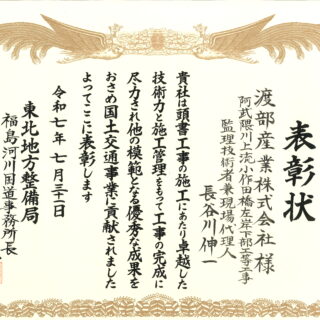 表彰状
渡部産業株式会社様
阿武隈川上流小作田橋左岸下部工等工事
監理技術者兼現場代理人
長谷川伸一
貴社は頭書工事の施工にあたり卓越した
技術力と施工管理をもって工事の完成に
尽力され他の模範となる優秀な成果を
おさめ国土交通事業に貢献されました
よってここに表彰します
令和七年七月三十一日
東北地方整備局
福島河川国道事務所長